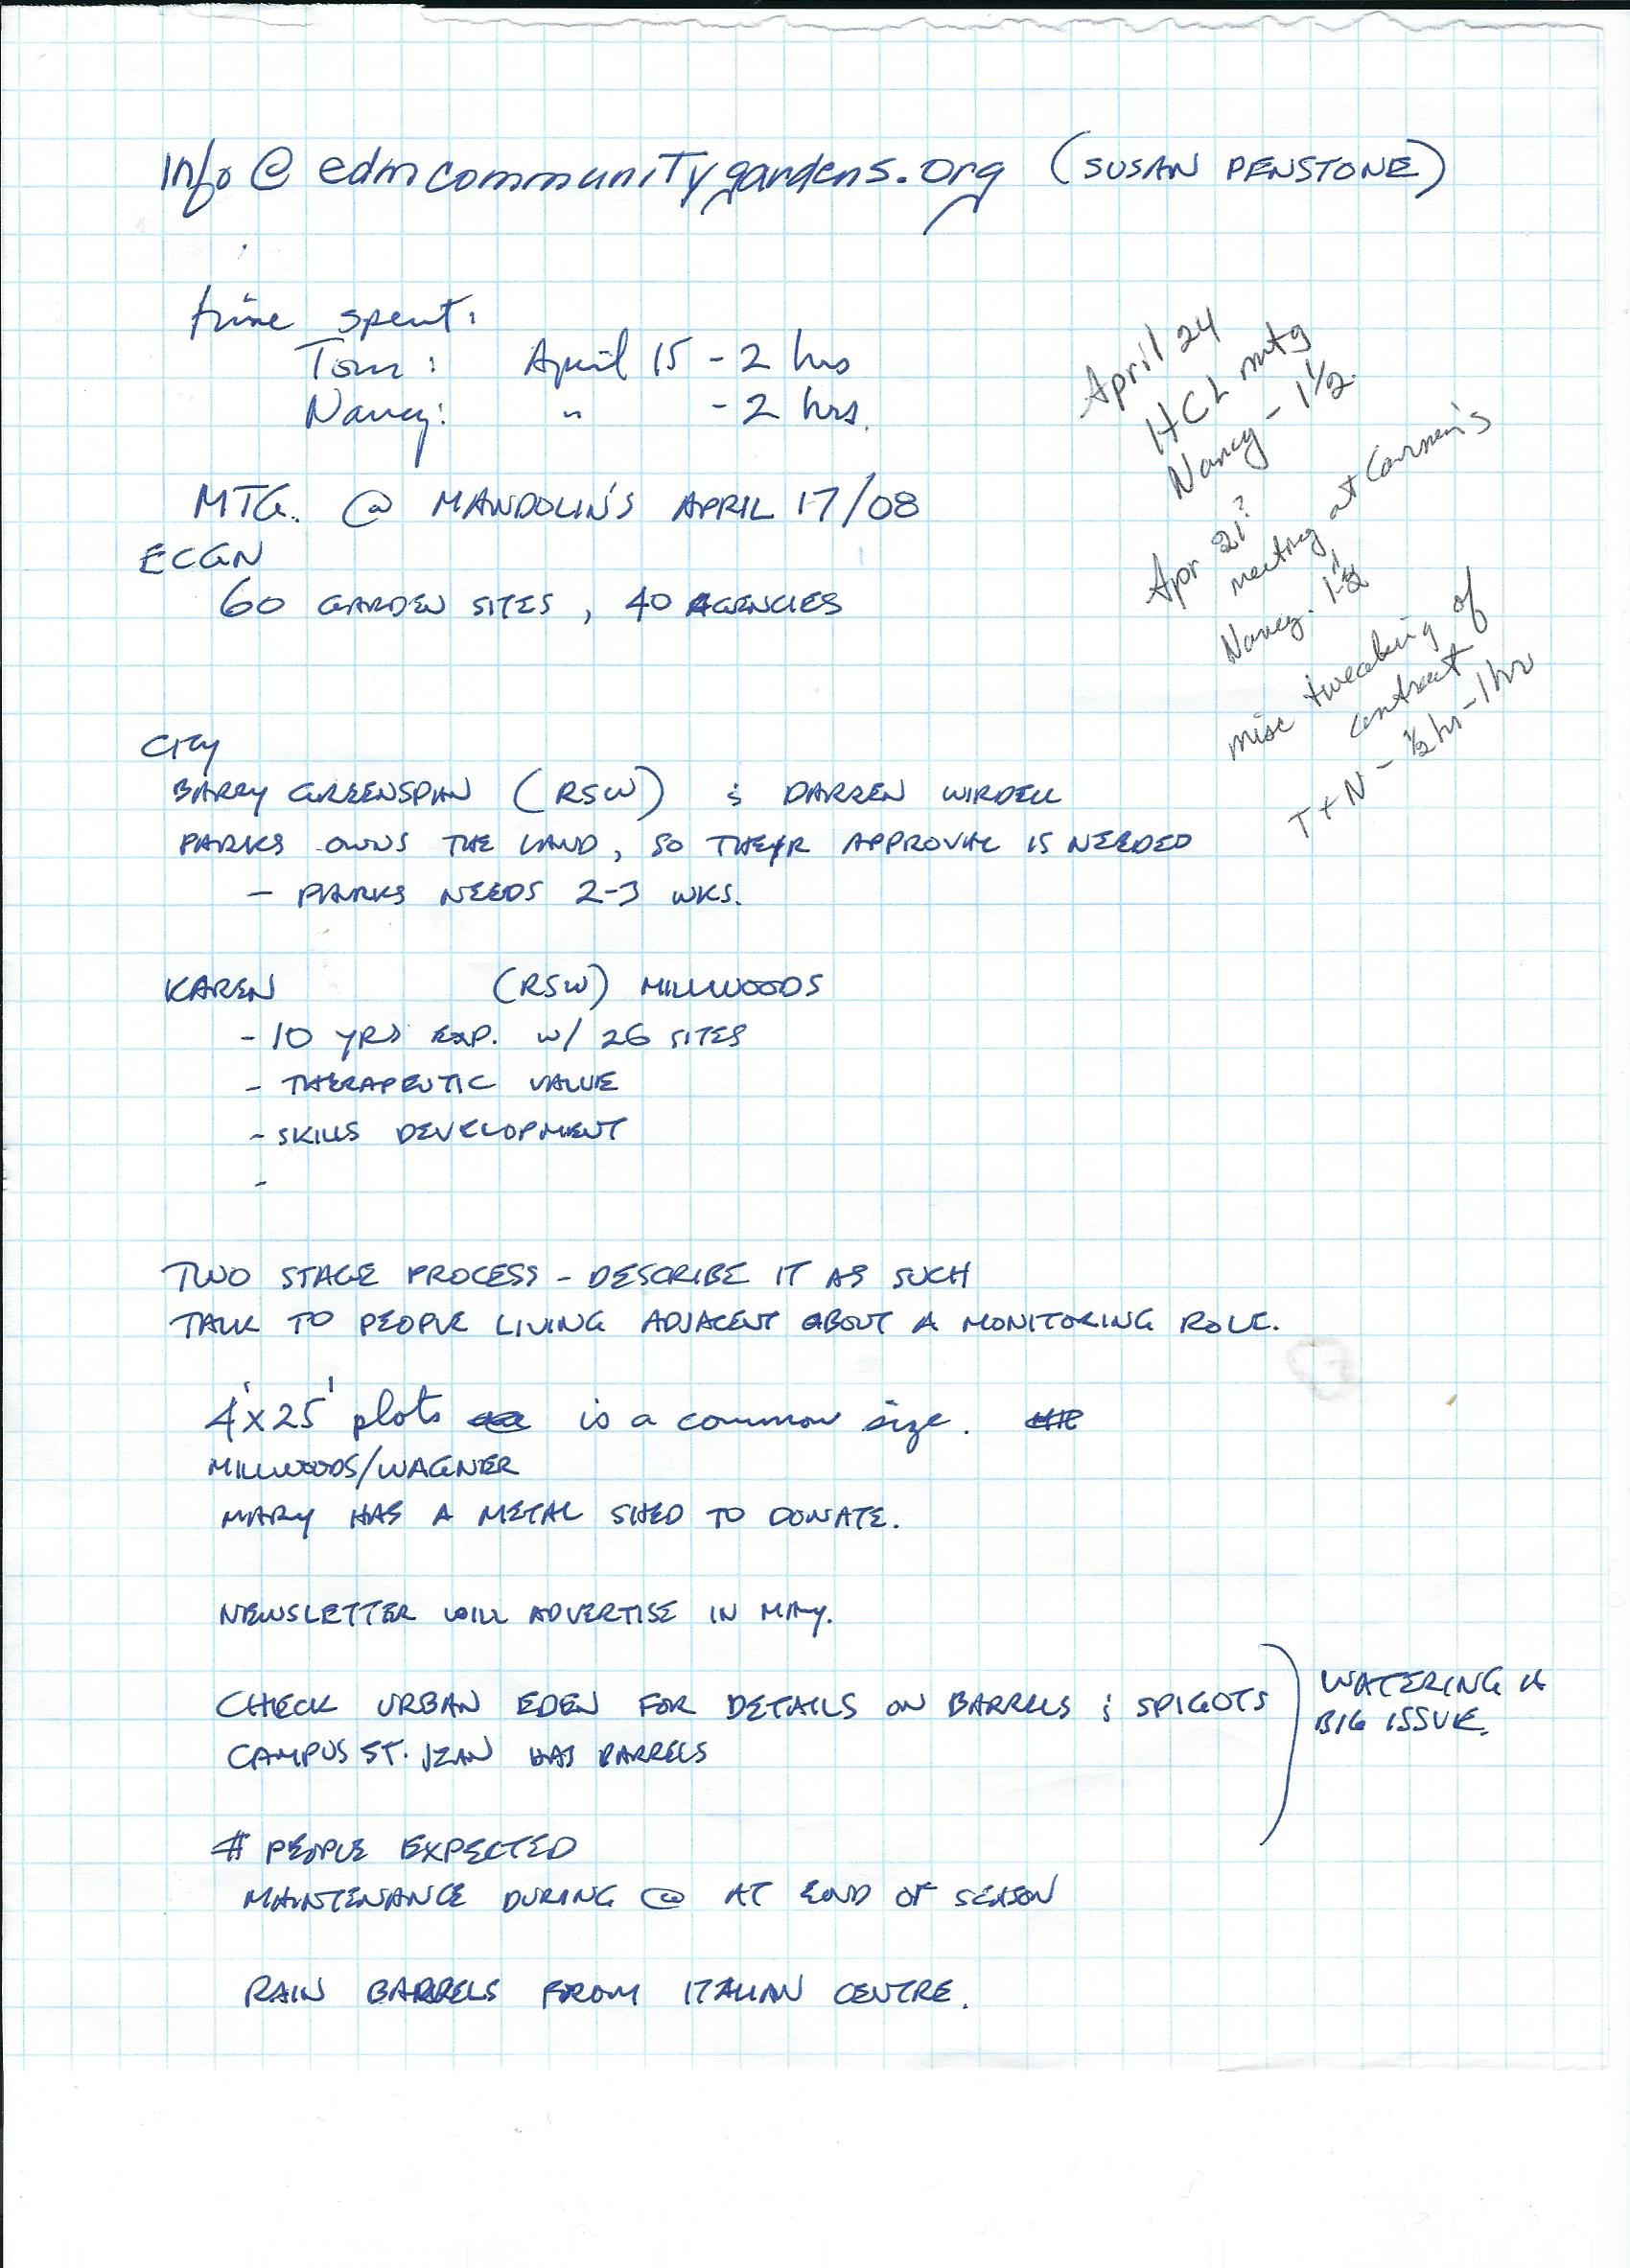 info@edmcommunitygardens.org (SUSAN PENSTONE)
time spent:
Tom: April 15 - 2 hrs
Nancy: " - 2 hrs.
April 24
HCL mtg
Nancy - 1 1/2.
Apr 21?
meeting at Carmen's
Nancy. 1 1/2
misc tweaking of
contract
T + N - 1/2 hr - 1 hr
MTG. @ MANDOLIN'S APRIL 17/08
ECGN
60 GARDEN SITES, 40 AGENCIES
CITY
BARRY GREENSPAN (RSW) & DARREN WIRDELL
PARKS OWNS THE LAND, SO THEIR APPROVAL IS NEEDED
- PARKS NEEDS 2-3 WKS.
KAREN (RSW) MILLWOODS
- 10 YRS EXP. W/ 26 SITES
- THERAPEUTIC VALUE
- SKILLS DEVELOPMENT
-
TWO STAGE PROCESS - DESCRIBE IT AS SUCH
TALK TO PEOPLE LIVING ADJACENT ABOUT A MONITORING ROLE.
4'x25' plots is a common size.
MILLWOODS/WAGNER
MARY HAS A METAL SHED TO DONATE.
NEWSLETTER WILL ADVERTISE IN MAY.
CHECK URBAN EDEN FOR DETAILS ON BARRELS & SPIGOTS
CAMPUS ST. JEAN HAS BARRELS
WATERING IS
BIG ISSUE.
# PEOPLE EXPECTED
MAINTENANCE DURING @ AT END OF SEASON
RAIN BARRELS FROM ITALIAN CENTRE.